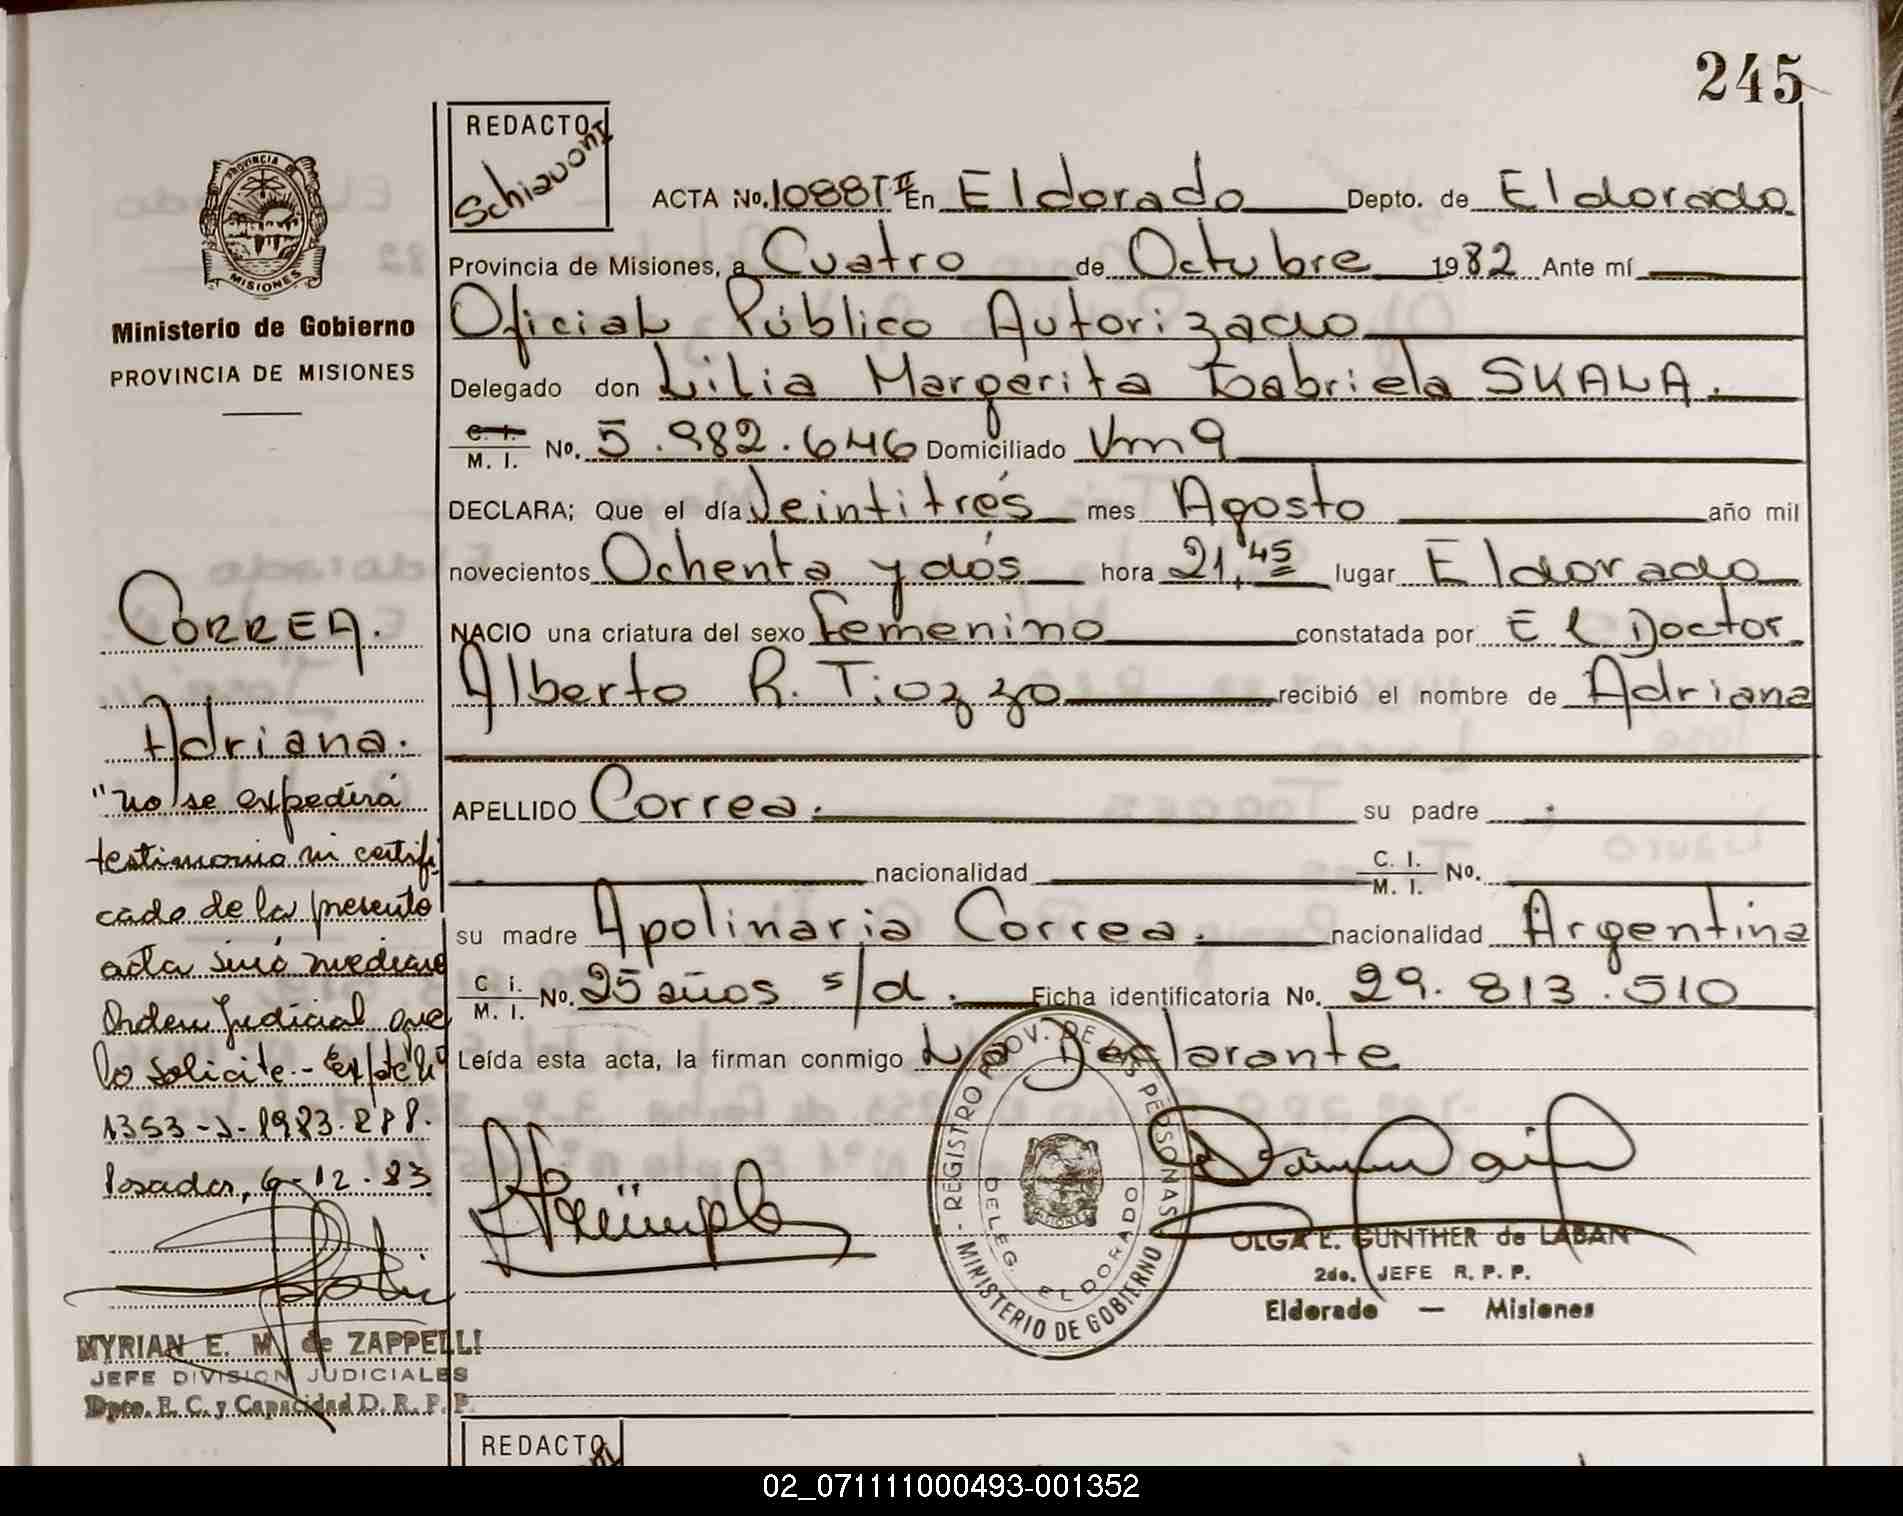 245
REDACTO
Schiavoni
ACTA No. 1088 T II En Eldorado Depto. de Eldorado
PROVINCIA
MISIONES
Provincia de Misiones, a Cuatro de Octubre 1982 Ante mí
Ministerio de Gobierno
PROVINCIA DE MISIONES
Oficial Público Autorizado
Delegado don Lilia Margarita Gabriela SKALA.
C. I.
M. I. No. 5.982.646 Domiciliado Km 9
DECLARA; Que el día Veintitrés mes Agosto año mil
novecientos Ochenta y dós hora 21,45 lugar Eldorado
NACIO una criatura del sexo Femenino constatada por El Doctor
Alberto R. Tiozzo recibió el nombre de Adriana
APELLIDO Correa. su padre
nacionalidad C. I. M. I. No.
su madre Apolinaria Correa. nacionalidad Argentina
C. I. M. I. No. 25 años s/d. Ficha identificatoria No. 29.813.510
Leída esta acta, la firman conmigo La Declarante
CORREA.
Adriana.
"no se expedirá
testimonio ni certifi
cado de la presente
acta sinó mediante
Orden Judicial que
lo solicite.- Expte Nº
1353-J-1983. RPP.
Posadas, 6-12-83
MYRIAN E. M. de ZAPPELLI
JEFE DIVISION JUDICIALES
Dpto. E. C. y Capacidad D. R. P. P.
REGISTRO PROV. DE LAS PERSONAS
MINISTERIO DE GOBIERNO
DELEG. ELDORADO
OLGA E. GUNTHER de LABAN
2do. JEFE R. P. P.
Eldorado — Misiones
REDACTO
02_071111000493-001352